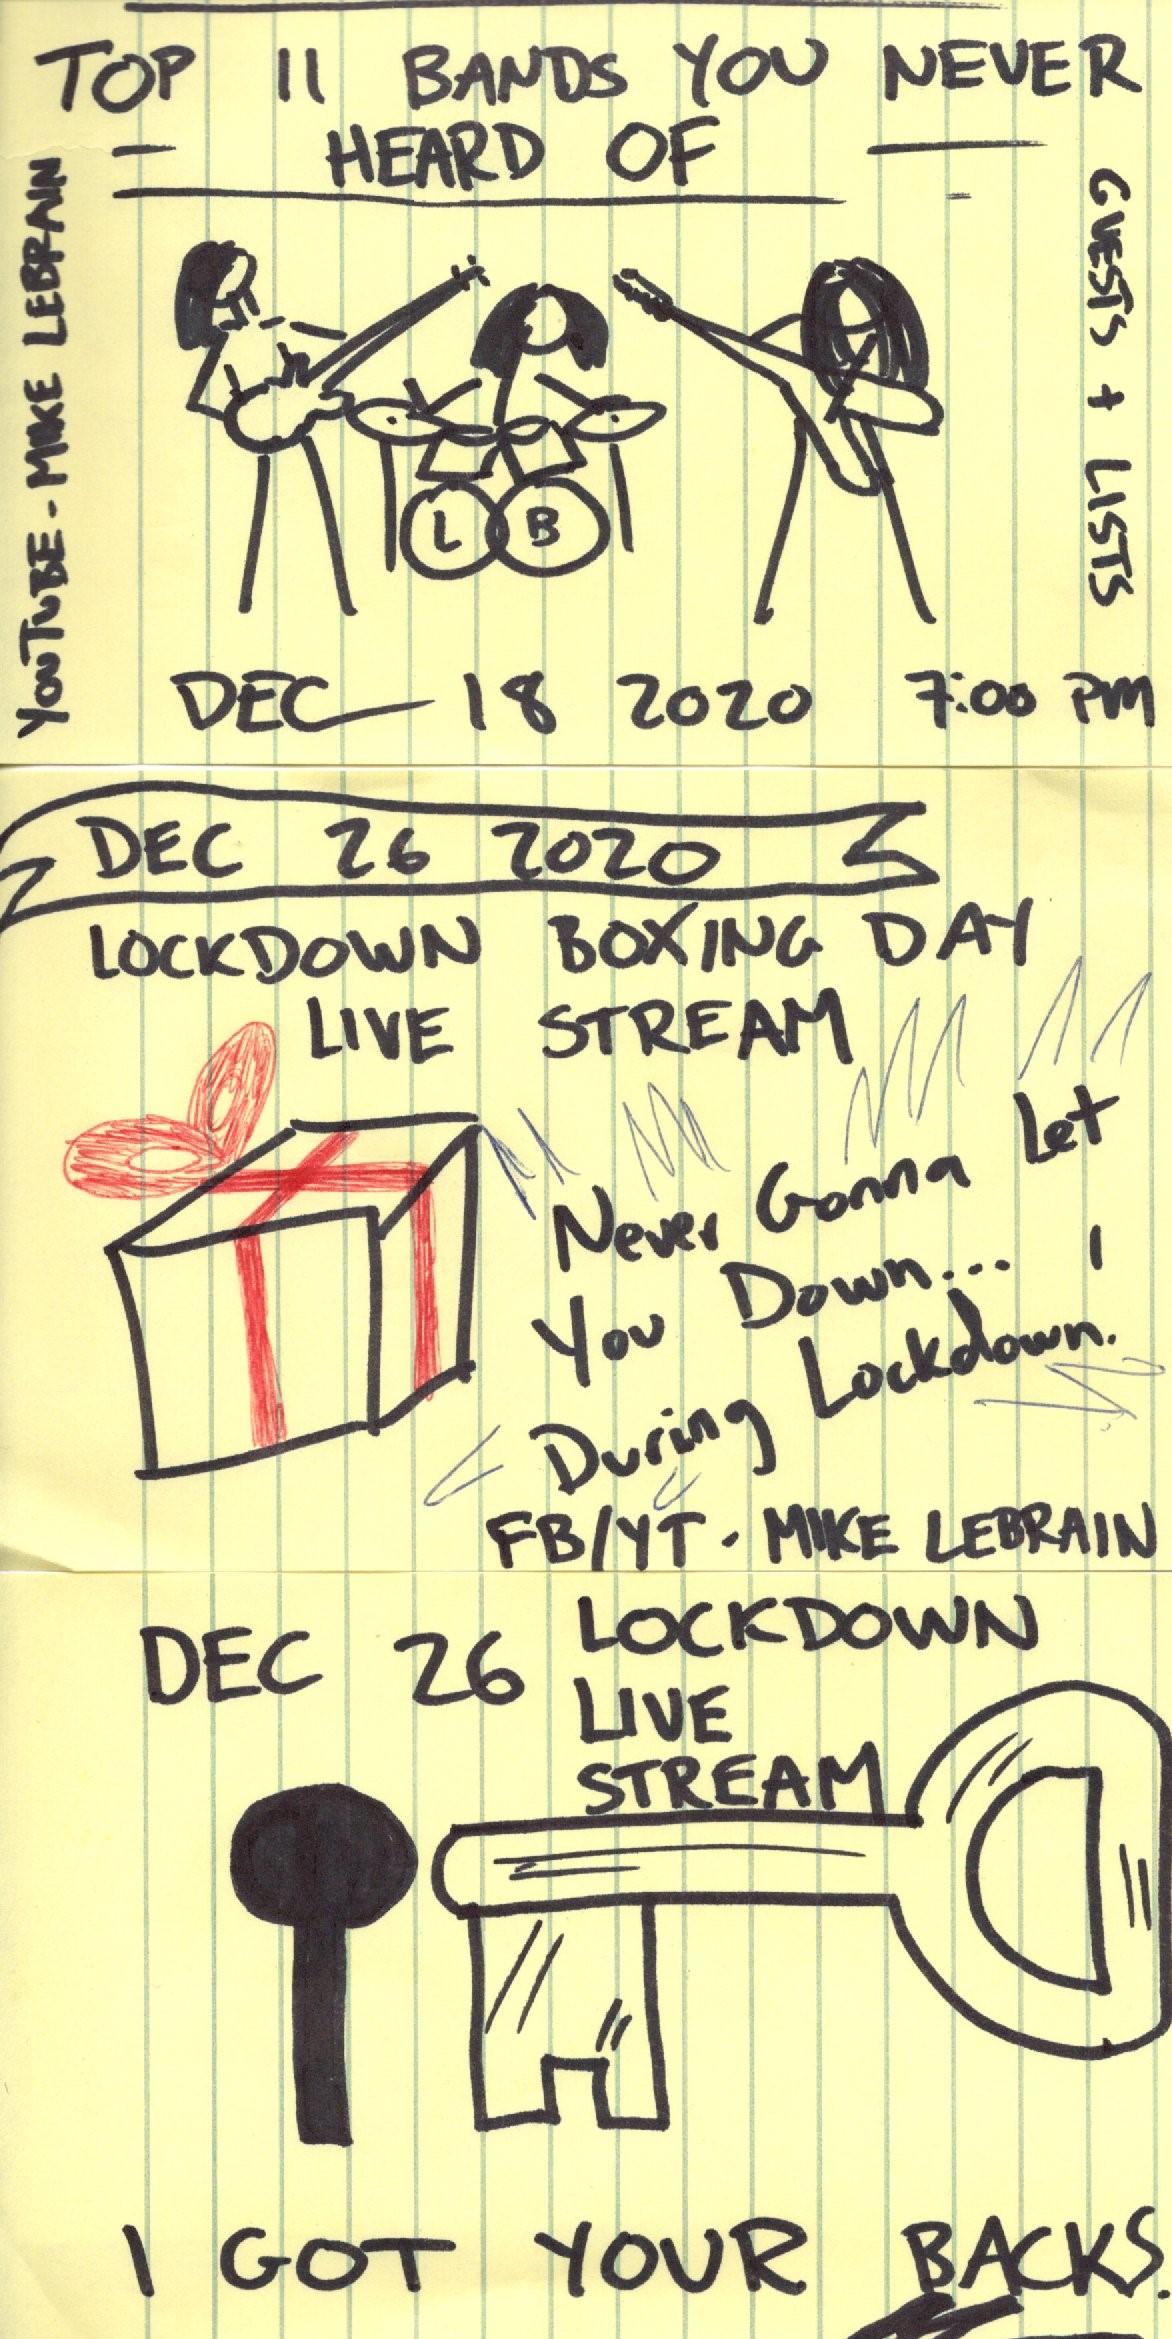 TOP 11 BANDS YOU NEVER
HEARD OF
YOUTUBE - MIKE LEBRAIN
GUESTS + LISTS
L B
DEC 18 2020 7:00 PM
DEC 26 2020
LOCKDOWN BOXING DAY
LIVE STREAM
Never Gonna Let
You Down...
During Lockdown.
FB/YT - MIKE LEBRAIN
DEC 26
LOCKDOWN
LIVE
STREAM
I GOT YOUR BACKS.